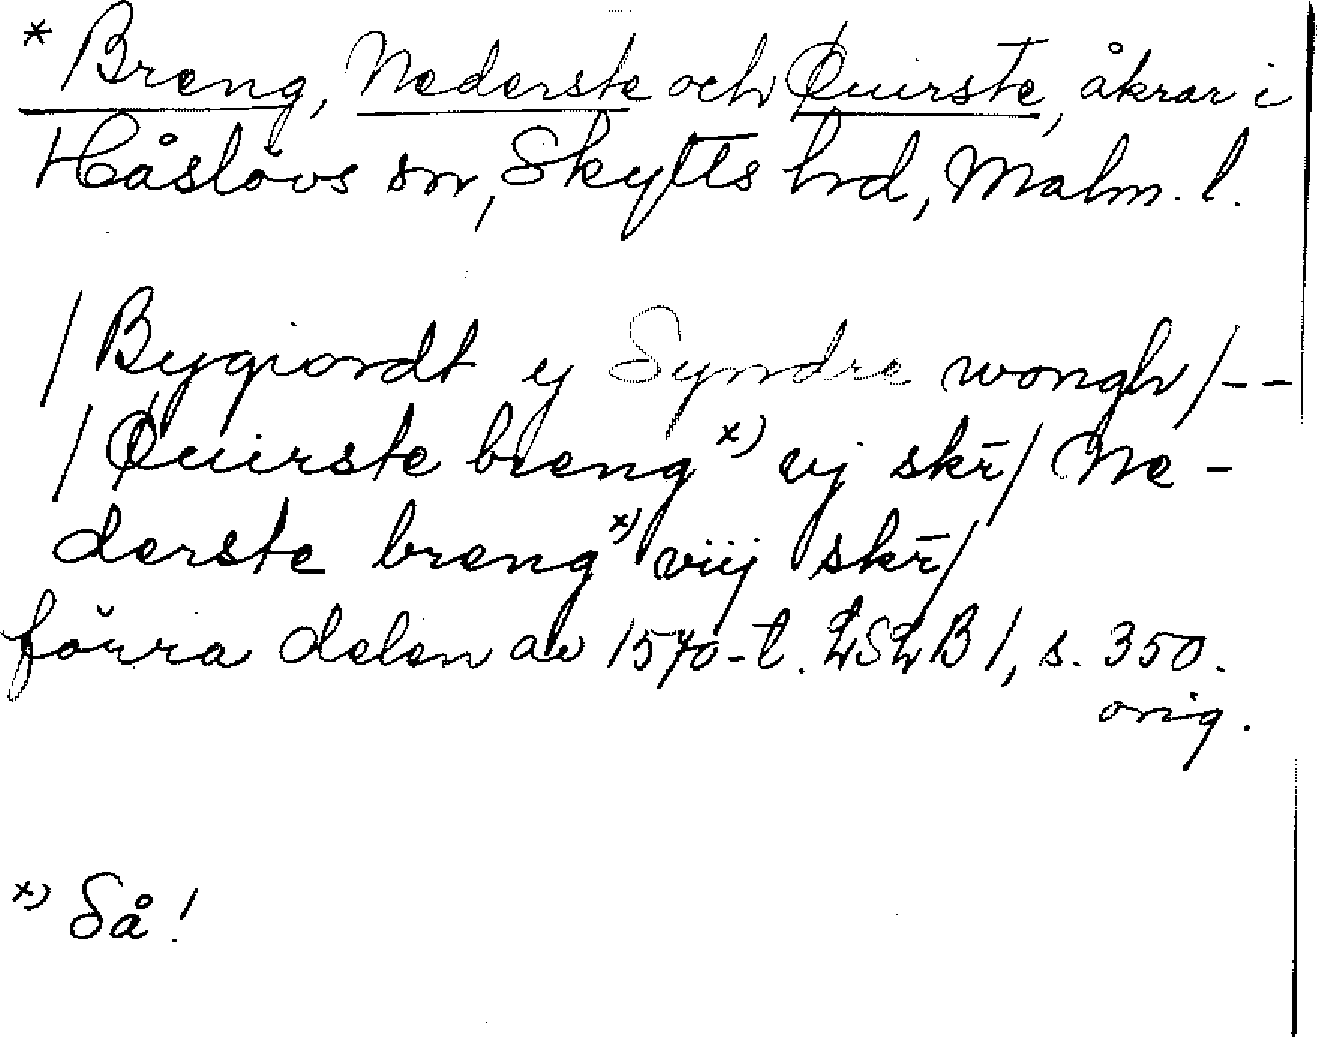 * Breng, Nederste och Øuirste, åkrar i
Håslövs sn, Skytts hrd, Malm. l.
/ Bygiordt y Syndre wongh / --
/ Øuirste breng x) vj skr̄ / Ne-
derste breng x) viij skr̄ /
förra delen av 1570-t. LSLB 1, s. 350.
orig.
x) Så!